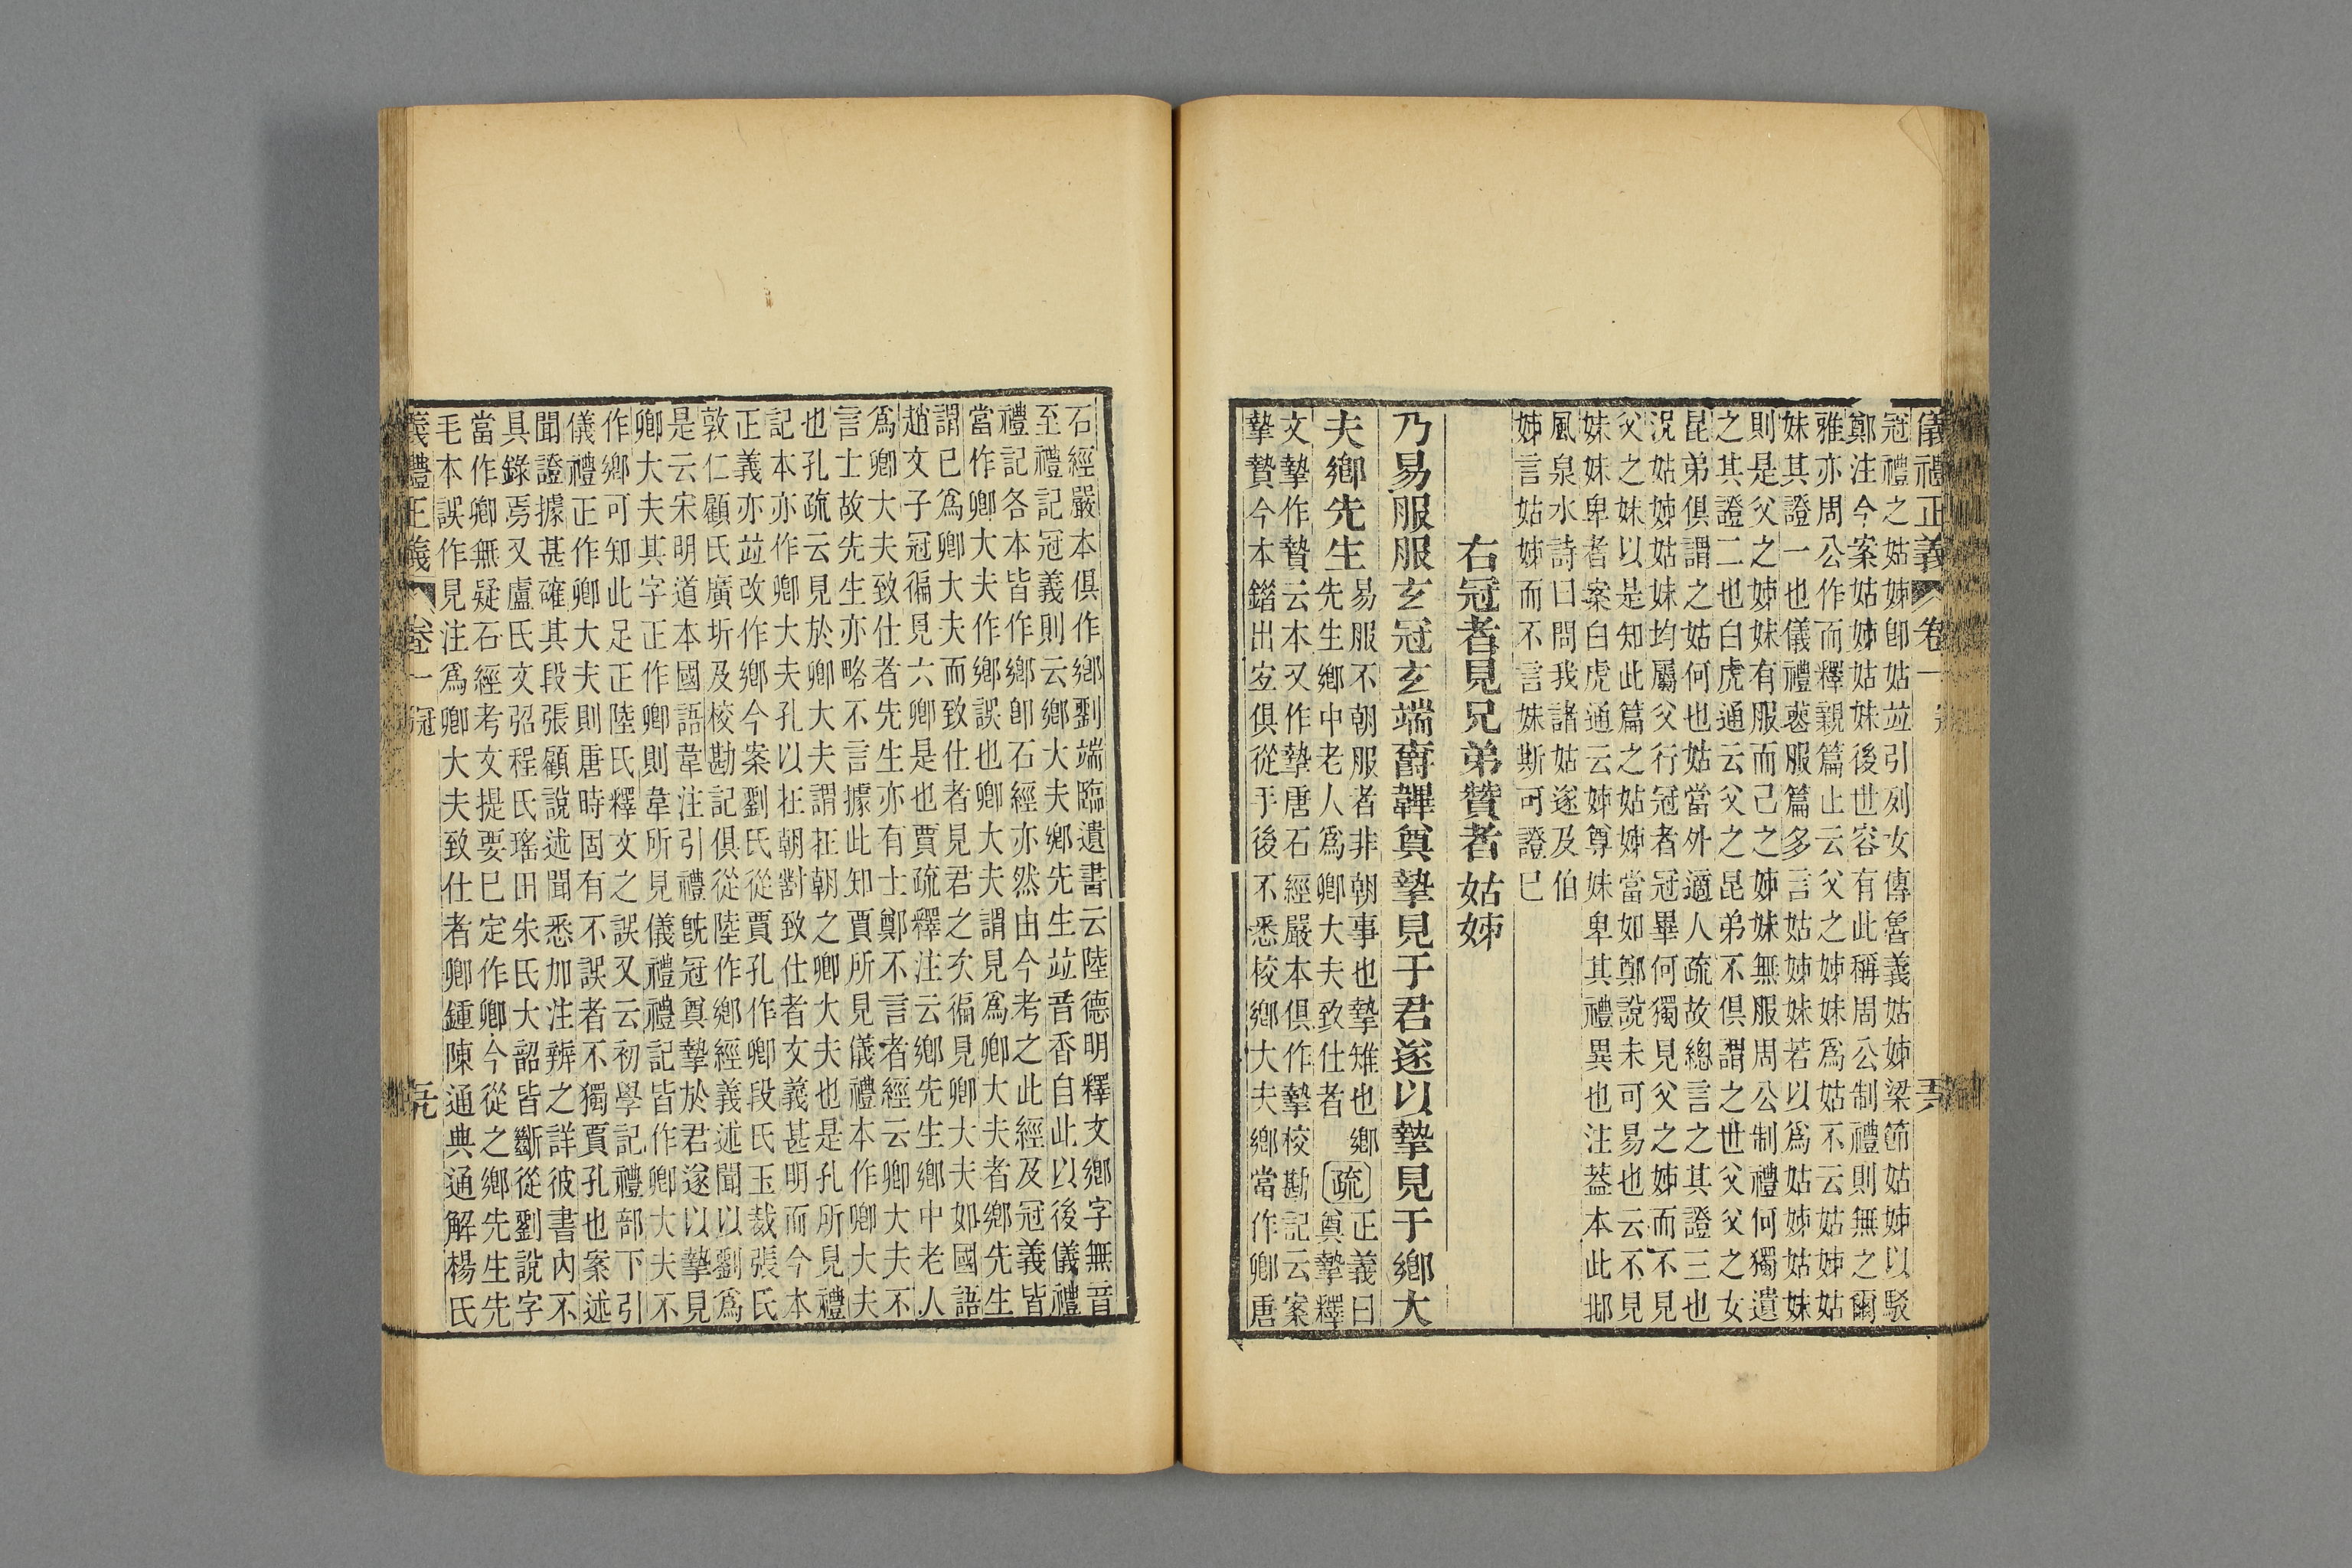 儀禮正義 卷一 冠
冠禮之姑姊卽姑竝引列女傳魯義姑姊梁節姑姊以駁
鄭注今案姑姊姑妹後世容有此稱周公制禮則無之爾
雅亦周公作而釋親篇止云父之姊妹爲姑不云姑姊姑
妹其證一也儀禮喪服篇多言姑姊妹若以爲姑姊姑妹
則是父之姊妹有服而己之姊妹無服周公制禮何獨遺
之其證二也白虎通云父之昆弟不俱謂之世父父之女
昆弟俱謂之姑何也姑當外適人疏故總言之其證三也
況姑姊姑妹均屬父行冠者冠畢何獨見父之姊而不見
父之妹以是知此篇之姑姊當如鄭說未可易也云不見
妹妹卑者案白虎通云姊尊妹卑其禮異也注蓋本此邶
風泉水詩曰問我諸姑遂及伯
姊言姑姊而不言妹斯可證已
右冠者見兄弟贊者姑姊
乃易服服玄冠玄端爵韠奠摯見于君遂以摯見于鄉大
夫鄉先生
易服不朝服者非朝事也摯雉也鄉
先生鄉中老人爲卿大夫致仕者
疏
正義曰
奠摯釋
文摯作贄云本又作摯唐石經嚴本俱作摯校勘記云案
摯贄今本錯出岦俱從手後不悉校鄉大夫鄉當作卿唐
石經嚴本俱作鄉劉端臨遺書云陸德明釋文鄉字無音
至禮記冠義則云鄉大夫鄉先生竝音香自此以後儀禮
禮記各本皆作鄉卽石經亦然由今考之此經及冠義皆
當作卿大夫作鄉誤也卿大夫謂見爲卿大夫者鄉先生
謂已爲卿大夫而致仕者見君之次徧見卿大夫如國語
趙文子冠徧見六卿是也賈疏釋注云鄉先生鄉中老人
爲卿大夫致仕者先生亦有士鄭不言者經云卿大夫不
言士故先生亦略不言據此知賈所見儀禮本作卿大夫
也孔疏云見於卿大夫謂在朝之卿大夫也是孔所見禮
記本亦作卿大夫孔以在朝對致仕者文義甚明而今本
正義亦竝改作鄉今案劉氏從賈孔作卿段氏玉裁張氏
敦仁顧氏廣圻及校勘記俱從陸作鄉經義述聞以劉爲
是云宋明道本國語韋注引禮旣冠奠摯於君遂以摯見
卿大夫其字正作卿則韋所見儀禮禮記皆作卿大夫不
作鄉可知此足正陸氏釋文之誤又云初學記禮部下引
儀禮正作卿大夫則唐時固有不誤者不獨賈孔也案述
聞證據甚確其段張顧說述聞悉加注辨之詳彼書內不
具錄焉又盧氏文弨程氏瑤田朱氏大韶皆斷從劉說字
當作卿無疑石經考文提要已定作卿今從之鄉先生先
毛本誤作見注爲卿大夫致仕者卿鍾陳通典通解楊氏
義禮正義 卷一 冠